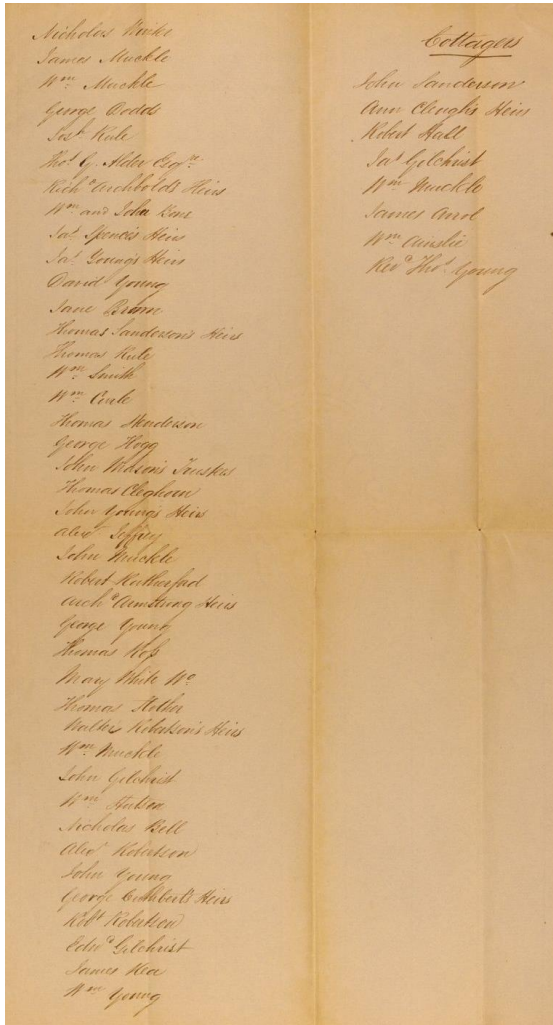 Nicholas
James Muckle
Wm. Muckle
George Dodds
Josh. Rule
Thos. G. Alder Esqre.
Richd. Archbold's Heirs
Wm. and John Kerr
Jas. Spence's Heirs
Jas. Young's Heirs
David Young
Jane Brown
Thomas Sanderson's Heirs
Thomas Rule
Wm. Smith
Wm.
Thomas Henderson
George Hogg
John Watson's Trustees
Thomas Cleghorn
John Young's Heirs
Alexr. Jeffrey
John Muckle
Robert Rutherford
Archd. Armstrong Heirs
George Young
Thomas
Mary White Wo.
Thomas
Walter Robertson's Heirs
Wm. Muckle
John Gilchrist
Wm.
Nicholas Bell
Alexr. Robertson
John Young
George Cuthbert's Heirs
Robt. Robertson
Edwd. Gilchrist
James
Wm. Young
Cottagers
John Sanderson
Ann Cleugh's Heirs
Robert Hall
Jas. Gilchrist
Wm. Muckle
James
Wm. Ainslie
Revd. Thos. Young